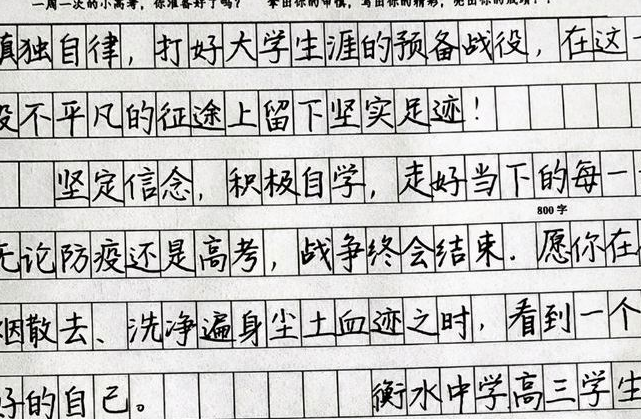 一周一次的小高考，你准备好了吗？
慎独自律，打好大学生涯的预备战役，在这一
段不平凡的征途上留下坚实足迹！
坚定信念，积极自学，走好当下的每一
800字
无论防疫还是高考，战争终会结束．愿你在
烟散去、洗净遍身尘土血迹之时，看到一个
好的自己。 衡水中学高三学生